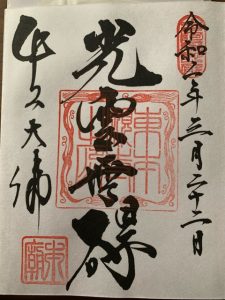 令和二年三月二十二日
光雲無碍
牛久大佛